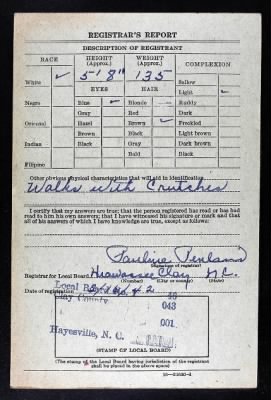 REGISTRAR'S REPORT
DESCRIPTION OF REGISTRANT
RACE
HEIGHT (Approx.)
WEIGHT (Approx.)
COMPLEXION
White ✓
5' 8"
135
Sallow
EYES
HAIR
Light ✓
Negro
Blue ✓
Blonde
Ruddy
Gray
Red
Dark
Oriental
Hazel
Brown ✓
Freckled
Brown
Black
Light brown
Indian
Black
Gray
Dark brown
Bald
Black
Filipino
Other obvious physical characteristics that will aid in identification
Walks with Crutches
I certify that my answers are true; that the person registered has read or has had
read to him his own answers; that I have witnessed his signature or mark and that
all of his answers of which I have knowledge are true, except as follows:
Pauline Penland
(Signature of registrar)
Registrar for Local Board Hiawassee Clay N.C.
(Number) (City or county) (State)
Date of registration
Local Board No. 1
Clay County
043
001
Hayesville, N. C.
(STAMP OF LOCAL BOARD)
(The stamp of the Local Board having jurisdiction of the registrant
shall be placed in the above space)